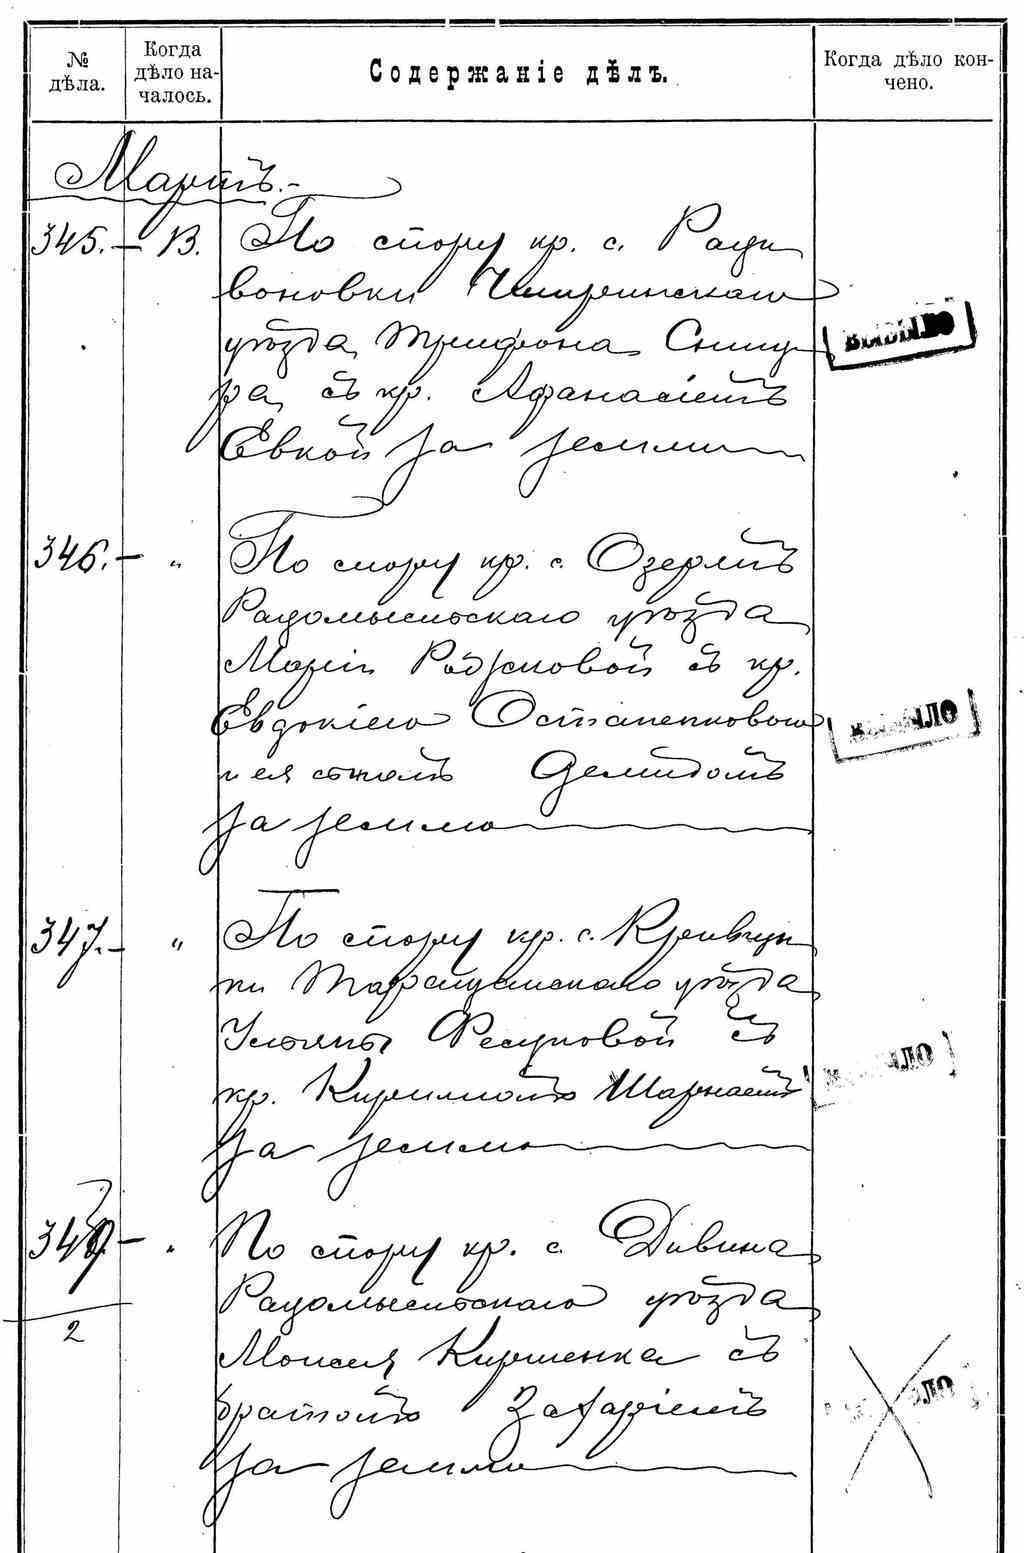 № дѣла.
Когда дѣло началось.
Содержаніе дѣлъ.
Когда дѣло кончено.
Мартъ.
345. — 13. По спору кр. с. Ради
воновки Чигиринскаго
уѣзда Трифона Сниц
ра съ кр. Афанасіемъ
Евкой за землю
ВЫБЫЛО
346. — " По спору кр. с. Озерянъ
Радомысльскаго уѣзда
Маріи съ кр.
Евдокіею Остапенковою
и ея сыномъ Демидомъ
за землю
ВЫБЫЛО
347. — " По спору кр. с. Кривчун
ки Таращанскаго уѣзда
Ульяны Фесуновой съ
кр. Кирилломъ
за землю
ВЫБЫЛО
349 — " По спору кр. с. Дивина
2
Радомысльскаго уѣзда
Моисея Кириенка съ
братомъ Захаріемъ
за землю
ВЫБЫЛО